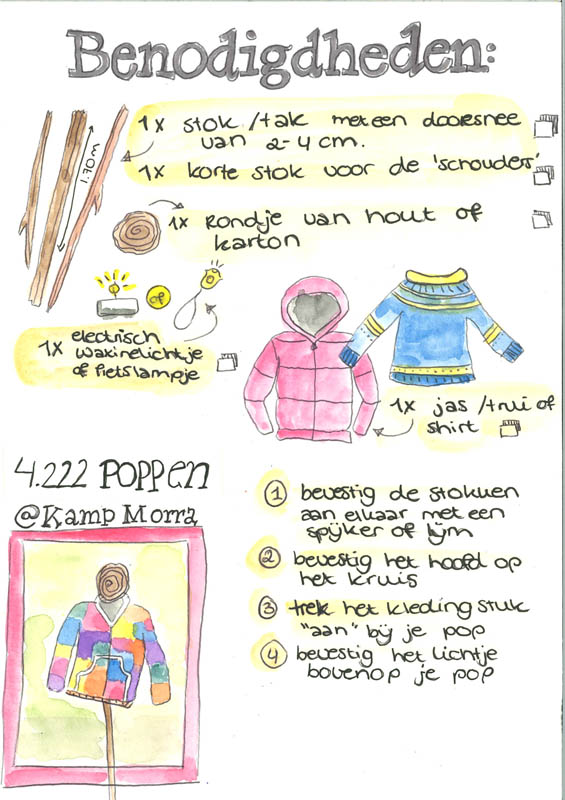 Benodigdheden:
1x stok/tak met een doorsnee
van 2-4 cm.
1x korte stok voor de 'schouders'
1.70 m
1x Rondje van hout of
karton
of
1x electrisch
waxinelichtje
of fietslampje
1x jas/trui of
shirt
4.222 POPPEN
@Kamp Morra
1 bevestig de stokken
aan elkaar met een
spijker of lijm
2 bevestig het hoofd op
het kruis
3 trek het kledingstuk
"aan" bij je pop
4 bevestig het lichtje
bovenop je pop